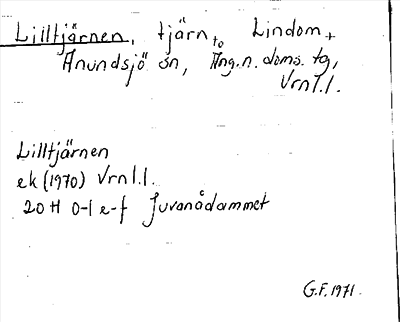 Lilltjärnen, tjärn to Lindom +
Anundsjö sn, Ång.n.doms.tg,
Vrnl.l.
Lilltjärnen
ek (1970) Vrnl.l.
20 H 0-1 e-f Juvanådammet
G.F. 1971.